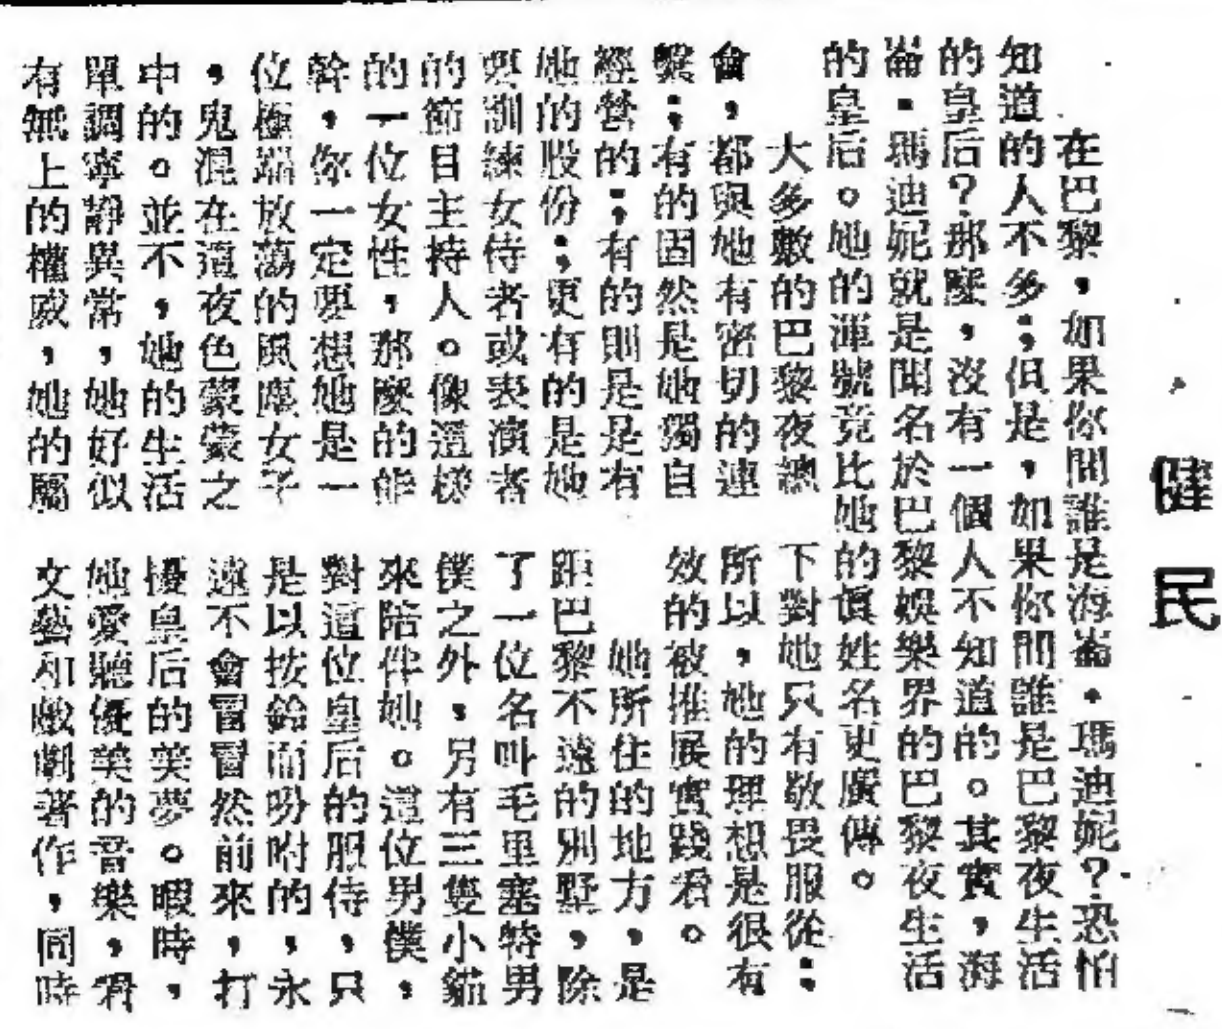 健民
在巴黎，如果你問誰是海崙．瑪迪妮？恐怕
知道的人不多；但是，如果你問誰是巴黎夜生活
的皇后？那麼，沒有一個人不知道的。其實，海
崙．瑪迪妮就是聞名於巴黎娛樂界的巴黎夜生活
的皇后。她的渾號竟比她的真姓名更廣傳。
大多數的巴黎夜總
會，都與她有密切的連
繫；有的固然是她獨自
經營的；有的則是是有
她的股份；更有的是她
要訓練女侍者或表演者
的節目主持人。像這樣
的一位女性，那麼的能
幹，你一定要想她是一
位極端放蕩的風塵女子
，鬼混在這夜色蒙蒙之
中的。並不，她的生活
單調寧靜異常，她好似
有無上的權威，她的屬
下對她只有敬畏服從；
所以，她的理想是很有
效的被推展實踐着。
她所住的地方，是
距巴黎不遠的別墅，除
了一位名叫毛里塞特男
僕之外，另有三隻小貓
來陪伴她。這位男僕，
對這位皇后的服侍，只
是以按鈴而吩咐的，永
遠不會冒冒然前來，打
擾皇后的美夢。暇時，
她愛聽優美的音樂，看
文藝和戲劇著作，同時